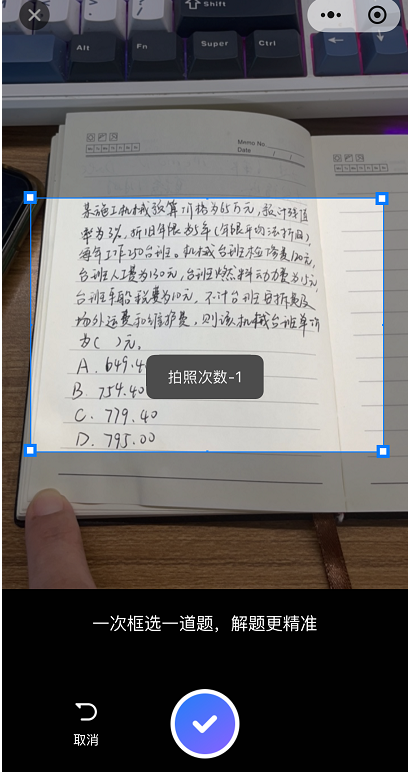 Shift
Alt
Fn
Super
Ctrl
Memo No.
Date / /
某施工机械预算价格为65万元,预计残值
率为3%,折旧年限为5年(年限平均法折旧),
每年工作250台班。机械台班检修费120元,
台班人工费为130元,台班燃料动力费为15元,
台班车船税费为10元,不计台班安拆费及
场外运费和维护费,则该机械台班单价
为( )元。
A. 649.4
B. 754.40
C. 779.40
D. 795.00
拍照次数-1
一次框选一道题,解题更精准
取消